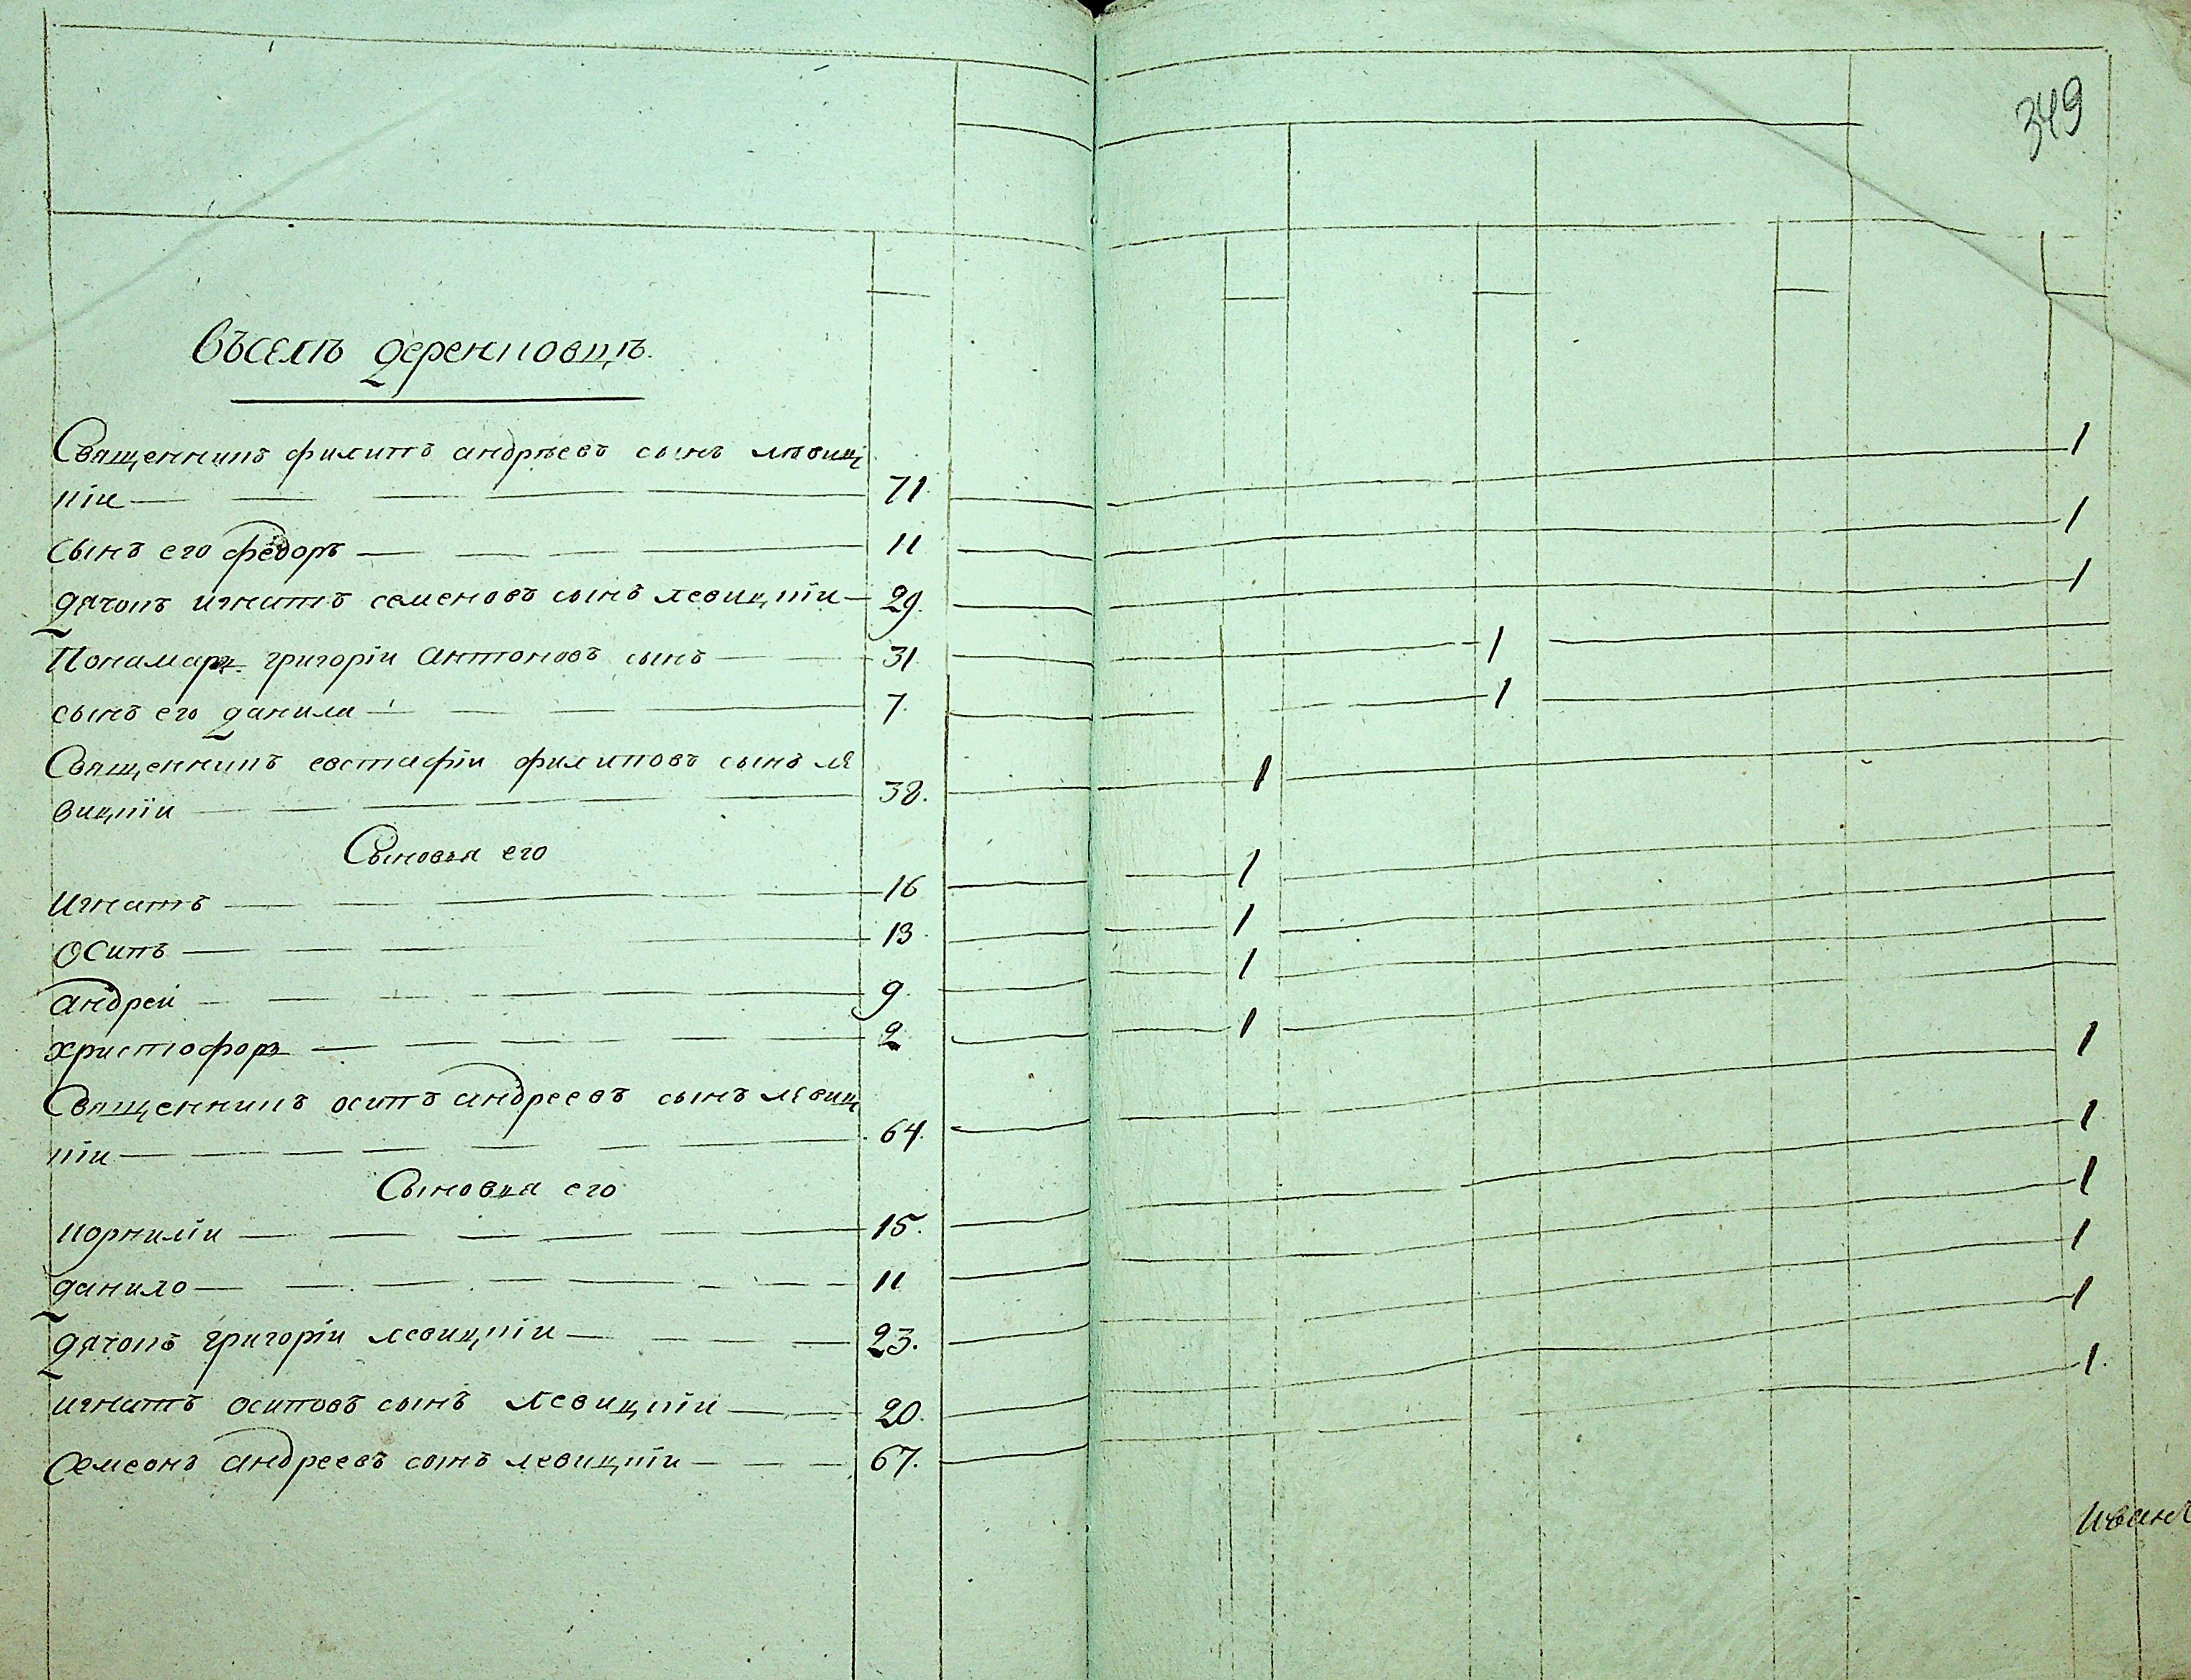 349
Въселѣ деренковцѣ.
Священникъ филипъ андрѣевъ сынъ лѣвиц
кiи — 71. 1
сынъ его федоръ — 11 1
дячокъ игнатъ семеновъ сынъ левицкiи — 29. 1
Понамарь григорiи антоновъ сынъ — 31 1
сынъ его данила — 7. 1
Священникъ евстафiи филиповъ сынъ ле
вицкiи — 38. 1
Сыновья его
игнатъ — 16 1
осипъ — 13. 1
андреи — 9. 1
христофоръ — 2 1
Священникъ осипъ андреевъ сынъ левиц
кiи — 64. 1
Сыновья его
корнилiи — 15. 1
данило — 11 1
дячокъ григорiи левицкiи — 23. 1
игнатъ осиповъ сынъ левицкiи — 20. 1
Семеонъ андреевъ сынъ левицкiи — 67. 1.